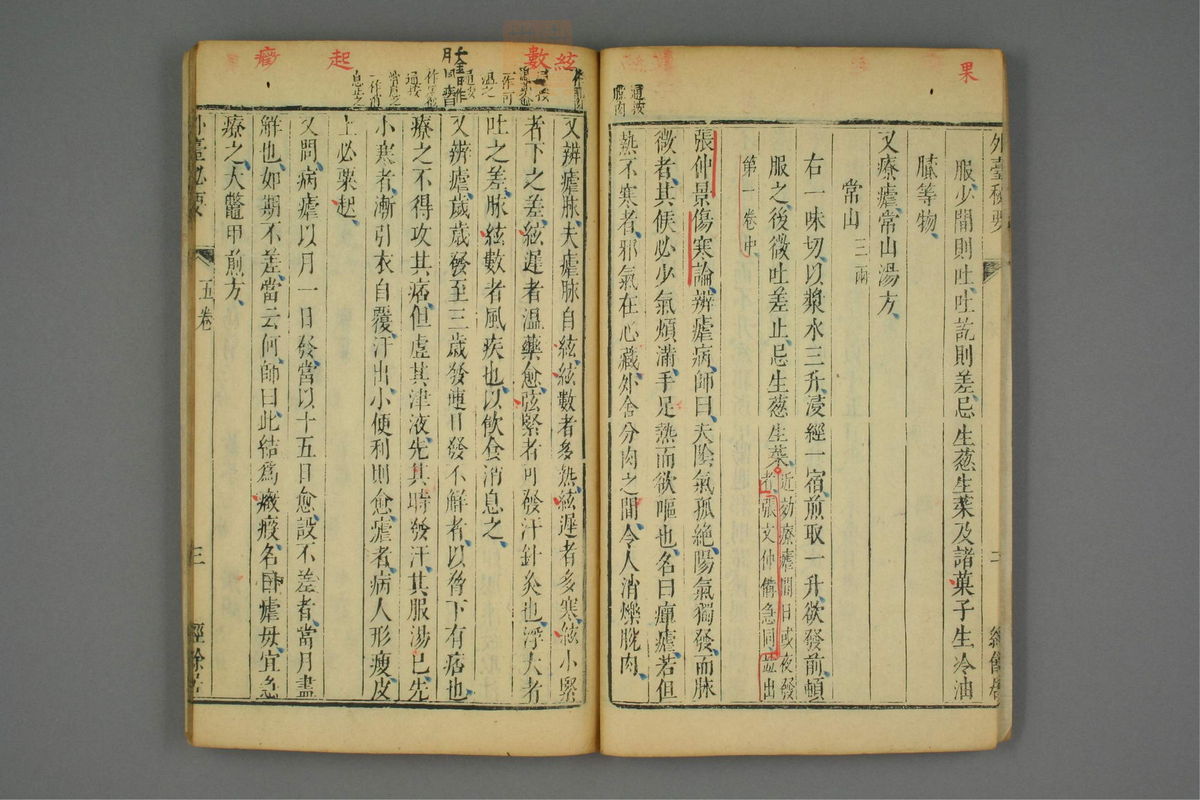 果
外臺秘要
服少間則吐吐訖則差忌生葱生菜及諸菓子生冷油
膩等物
又療瘧常山湯方
常山三兩
右一味切以漿水三升浸經一宿煎取一升欲發前頓
服之後微吐差止忌生葱生菜近効療瘧間日或夜發者張文仲備急同並出
第一卷中
張仲景傷寒論辨瘧病師曰夫陰氣孤絕陽氣獨發而脉
微者其候必少氣煩滿手足熱而欲嘔也名曰癉瘧若但
熱不寒者邪氣在心藏外舍分肉之間令人消爍脫肉
絃
數
起
又辨瘧脉夫瘧脉自絃絃數者多熱絃遲者多寒絃小緊
者下之差絃遲者溫藥愈弦緊者可發汗針灸也浮大者
吐之差脉絃數者風疾也以飲食消息之
又辨瘧歲歲發至三歲發連日發不解者以脅下有痞也
療之不得攻其痞但虛其津液先其時發汗其服湯已先
小寒者漸引衣自覆汗出小便利則愈瘧者病人形瘦皮
上必粟起
又問病瘧以月一日發當以十五日愈設不差者當月盡
解也如期不差當云何師曰此結為癥瘕名曰瘧母宜急
療之大鼈甲煎方
外臺秘要 五卷 三 經餘居